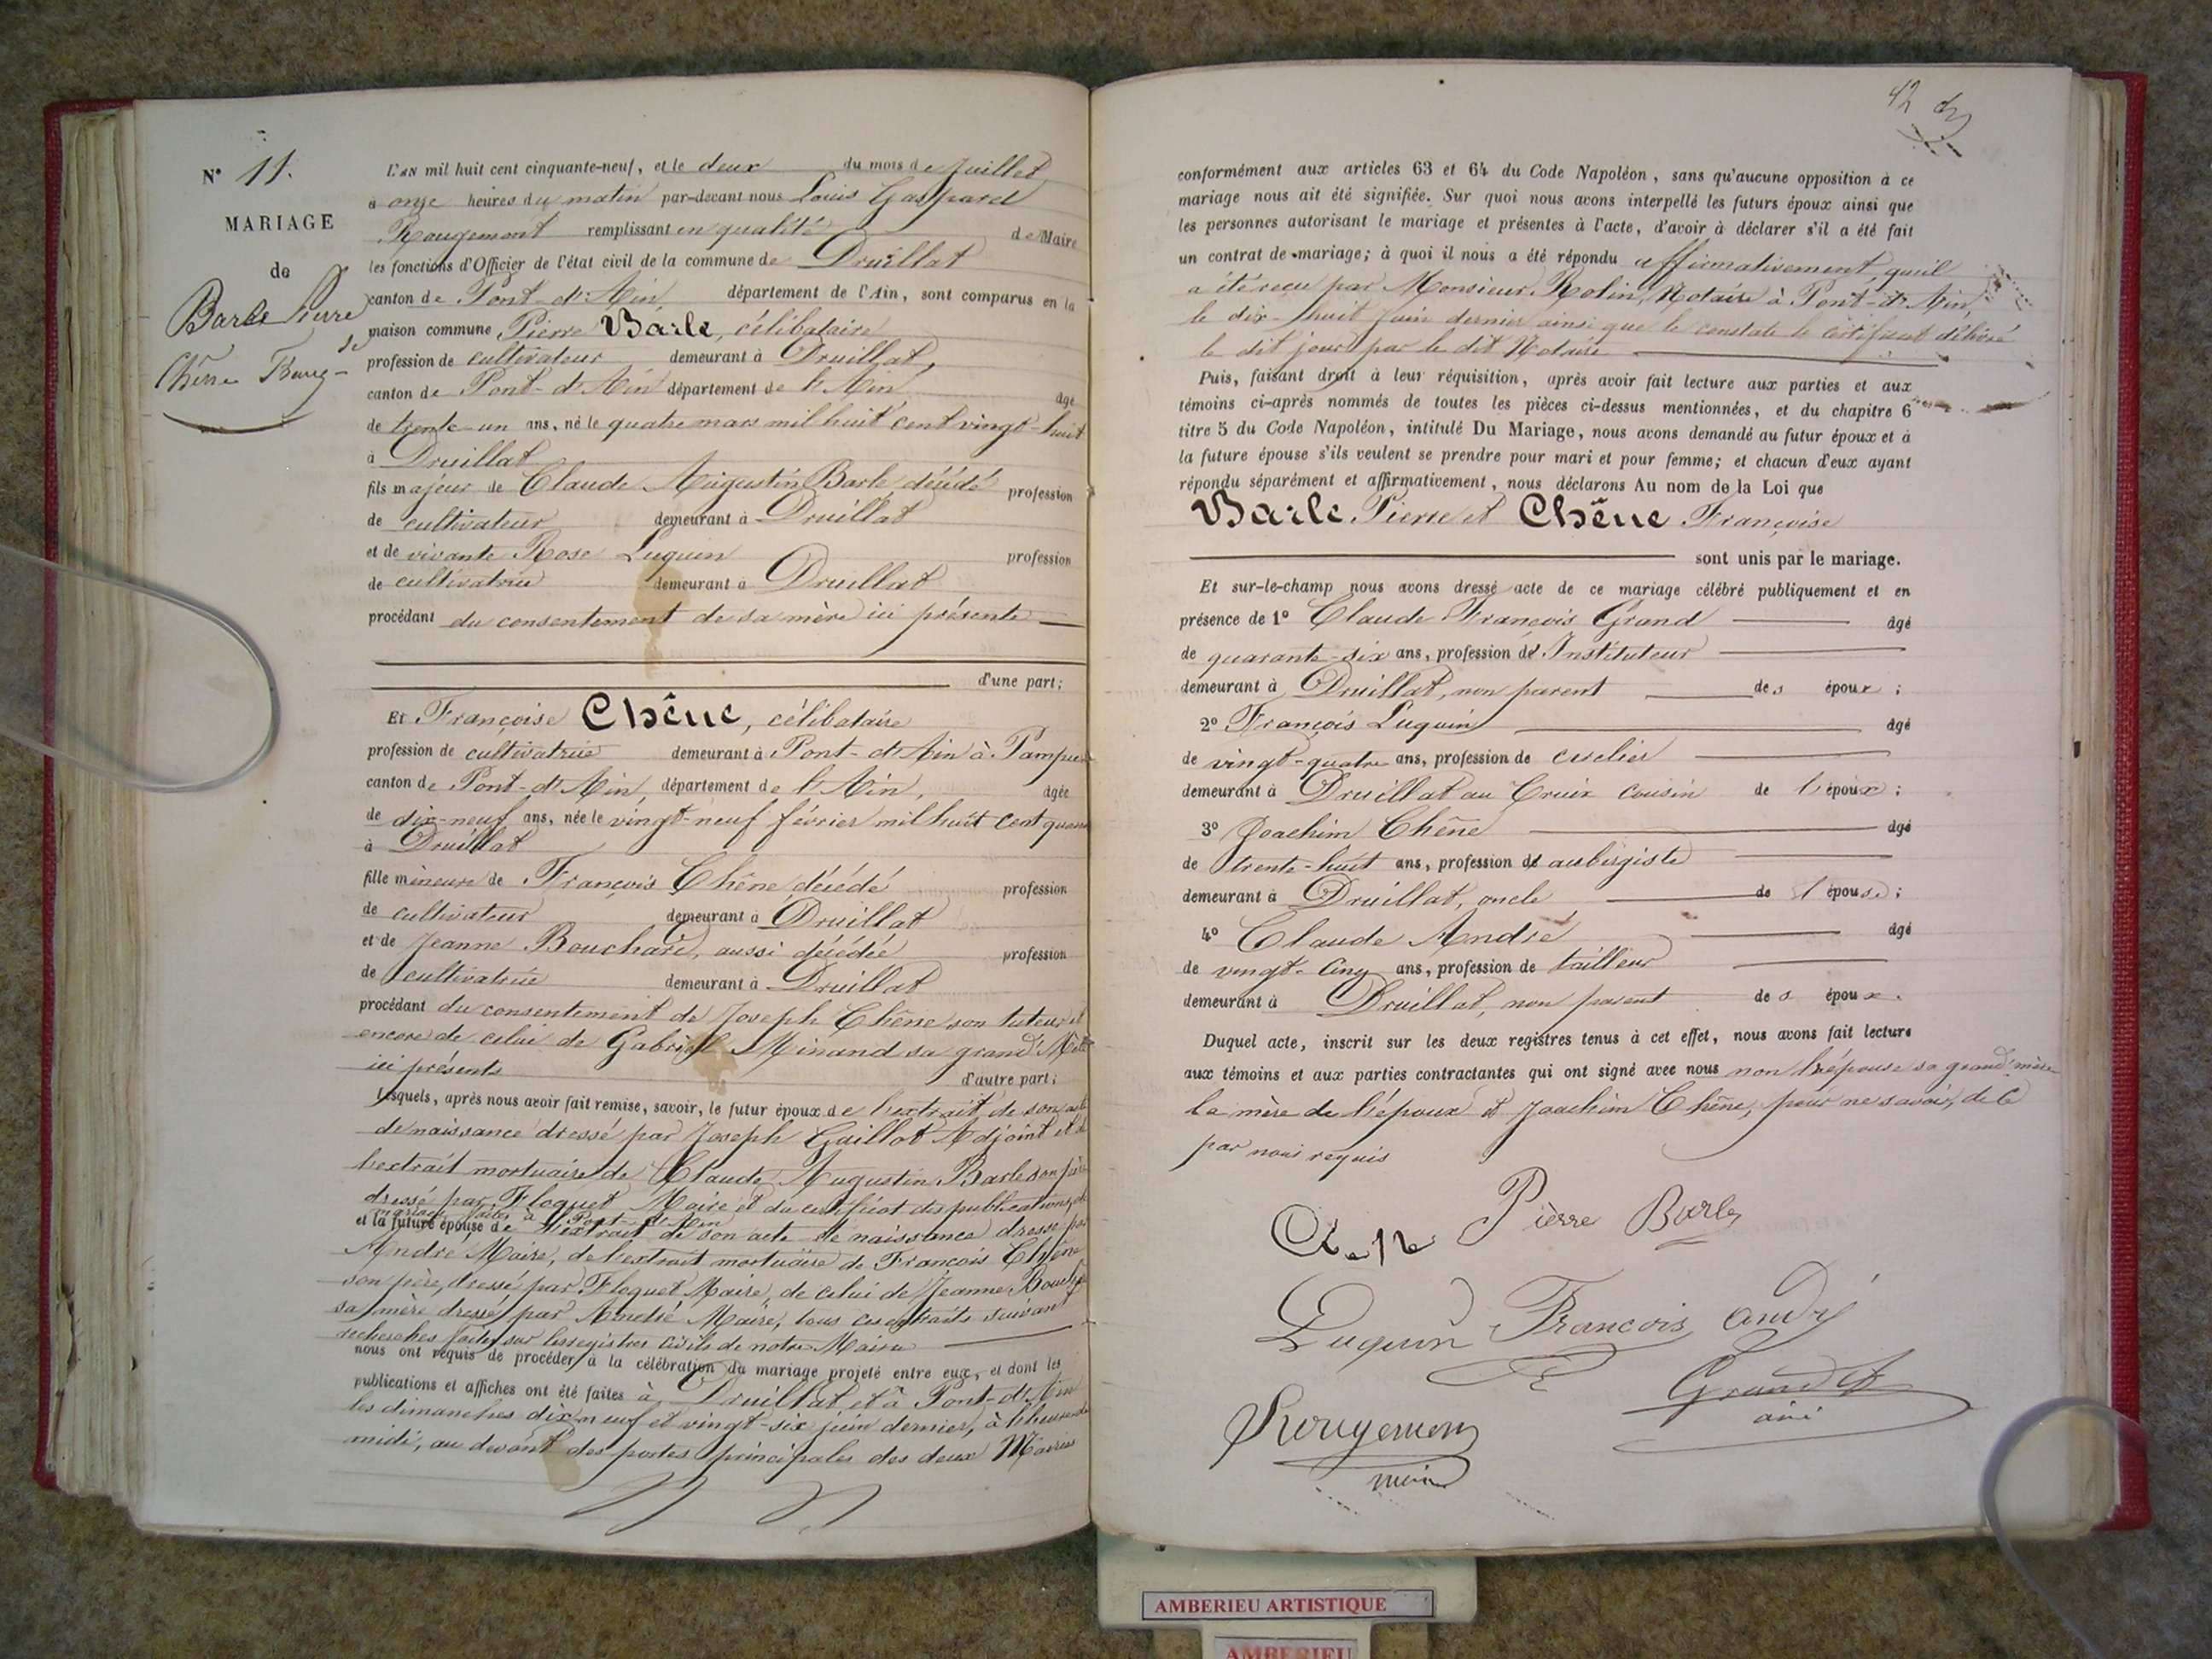 N° 11.
MARIAGE
de
Barle Pierre
et
Chêne Franç-
L'AN mil huit cent cinquante-neuf, et le deux du mois de Juillet
à onze heures du matin par-devant nous Louis Gaspard
Rougemont remplissant en qualité de Maire
les fonctions d'Officier de l'état civil de la commune de Druillat
canton de Pont-d'Ain, département de l'Ain, sont comparus en la
maison commune Pierre Barle, célibataire
profession de cultivateur demeurant à Druillat,
canton de Pont-d'Ain département de l'Ain, âgé
de trente-un ans, né le quatre mars mil huit cent vingt-huit
à Druillat
fils majeur de Claude Augustin Barle, décédé profession
de cultivateur demeurant à Druillat
et de vivante Rose Luquin profession
de cultivatrice demeurant à Druillat
procédant du consentement de sa mère ici présente
d'une part;
Et Françoise Chêne, célibataire
profession de cultivatrice demeurant à Pont-d'Ain à
canton de Pont-d'Ain, département de l'Ain, âgée
de dix-neuf ans, née le vingt-neuf février mil huit cent
à Druillat
fille mineure de François Chêne décédé profession
de cultivateur demeurant à Druillat
et de Jeanne Bouchard, aussi décédée profession
de cultivatrice demeurant à Druillat
procédant du consentement de Joseph Chêne son tuteur et
encore de celui de Minand sa grand'
ici présents d'autre part;
Lesquels, après nous avoir fait remise, savoir, le futur époux de l'extrait de son
de naissance dressé par Joseph Guillot Adjoint et de
l'extrait mortuaire de Claude Augustin Barle son père
dressé par Floquet Maire et du certificat des publications de
mariage faites à Pont-de-Ain
et la future épouse de l'extrait de son acte de naissance dressé par
André Maire, de l'extrait mortuaire de François Chêne
son père, dressé par Floquet Maire, de celui de Jeanne
sa mère dressé par André Maire, tous ces extraits suivant
recherches faites sur les registres civils de notre Mairie
nous ont requis de procéder à la célébration du mariage projeté entre eux, et dont les
publications et affiches ont été faites à Druillat et à Pont-d'Ain
les dimanches dix-neuf et vingt-six juin dernier, à l'heure de
midi, au devant des portes principales des deux Mairies
42
conformément aux articles 63 et 64 du Code Napoléon, sans qu'aucune opposition à ce
mariage nous ait été signifiée. Sur quoi nous avons interpellé les futurs époux ainsi que
les personnes autorisant le mariage et présentes à l'acte, d'avoir à déclarer s'il a été fait
un contrat de mariage; à quoi il nous a été répondu affirmativement, qu'il
a été reçu par Monsieur Rolin, Notaire à Pont-d'Ain,
le dix-huit juin dernier ainsi que le constate le certificat délivré
le dit jour par le dit Notaire
Puis, faisant droit à leur réquisition, après avoir fait lecture aux parties et aux
témoins ci-après nommés de toutes les pièces ci-dessus mentionnées, et du chapitre 6
titre 5 du Code Napoléon, intitulé Du Mariage, nous avons demandé au futur époux et à
la future épouse s'ils veulent se prendre pour mari et pour femme; et chacun d'eux ayant
répondu séparément et affirmativement, nous déclarons Au nom de la Loi que
Barle Pierre et Chêne Françoise
sont unis par le mariage.
Et sur-le-champ nous avons dressé acte de ce mariage célébré publiquement et en
présence de 1° Claude François Grand âgé
de quarante-six ans, profession de Instituteur
demeurant à Druillat, non parent des époux;
2° François Luquin âgé
de vingt-quatre ans, profession de
demeurant à Druillat au Cruix cousin de l'époux;
3° Joachim Chêne âgé
de trente-huit ans, profession de aubergiste
demeurant à Druillat, oncle de l'épouse;
4° Claude André âgé
de vingt-cinq ans, profession de tailleur
demeurant à Druillat, non parent des époux.
Duquel acte, inscrit sur les deux registres tenus à cet effet, nous avons fait lecture
aux témoins et aux parties contractantes qui ont signé avec nous non l'épouse sa grand'mère
la mère de l'époux et Joachim Chêne, pour ne savoir, de ce
par nous requis
Pièrre Barle
Luquin François André
Grand
ainé
Rougemont
maire
AMBERIEU ARTISTIQUE
AMBERIEU